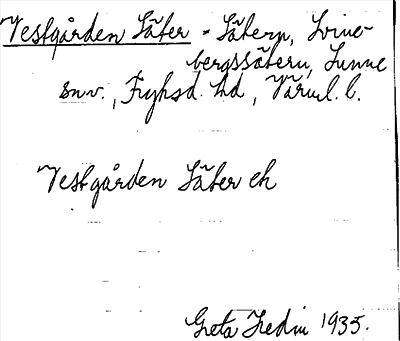 Vestgården Säter - Sätern, Svine-
bergssätern, Sunne
snv., Fryksd. hd, Värml. l.
Vestgården Säter ek
Greta Hedin 1935.